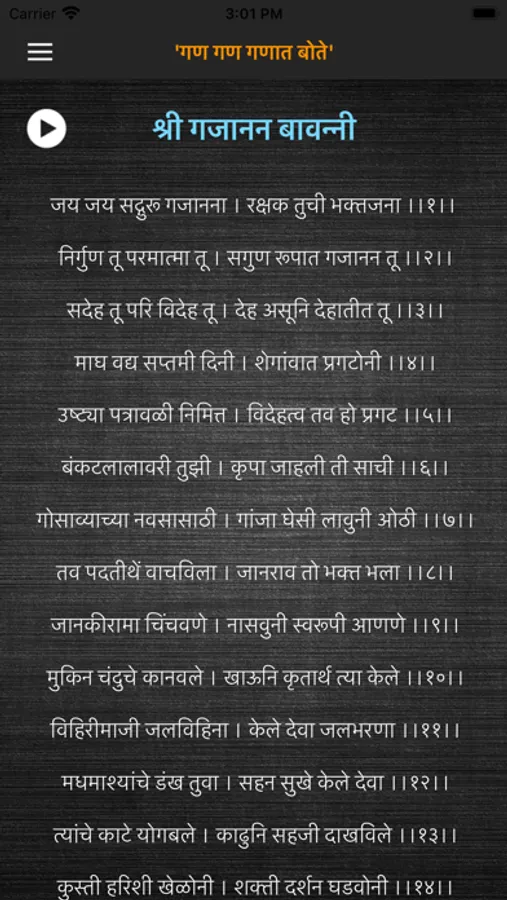 Carrier 3:01 PM
'गण गण गणात बोते'
श्री गजानन बावन्नी
जय जय सद्गुरू गजानना । रक्षक तुची भक्तजना ।।१।।
निर्गुण तू परमात्मा तू । सगुण रूपात गजानन तू ।।२।।
सदेह तू परि विदेह तू । देह असूनि देहातीत तू ।।३।।
माघ वद्य सप्तमी दिनी । शेगांवात प्रगटोनी ।।४।।
उष्ट्या पत्रावळी निमित्त । विदेहत्व तव हो प्रगट ।।५।।
बंकटलालावरी तुझी । कृपा जाहली ती साची ।।६।।
गोसाव्याच्या नवसासाठी । गांजा घेसी लावुनी ओठी ।।७।।
तव पदतीर्थें वाचविला । जानराव तो भक्त भला ।।८।।
जानकीरामा चिंचवणे । नासवुनी स्वरूपी आणणे ।।९।।
मुकिन चंदुचे कानवले । खाऊनि कृतार्थ त्या केले ।।१०।।
विहिरीमाजी जलविहिना । केले देवा जलभरणा ।।११।।
मधमाश्यांचे डंख तुवा । सहन सुखे केले देवा ।।१२।।
त्यांचे काटे योगबले । काढुनि सहजी दाखविले ।।१३।।
कुस्ती हरिशी खेळोनी । शक्ती दर्शन घडवोनी ।।१४।।